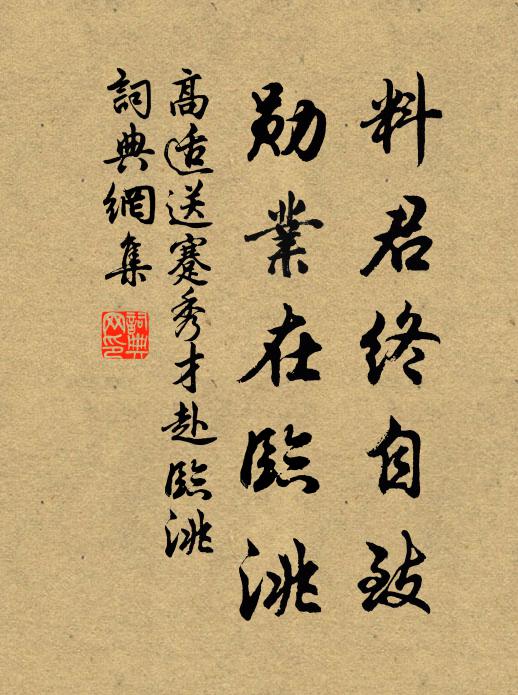 料君終自致
勛業在臨洮
高适送蹇秀才赴臨洮
詞典網集
詞典網印